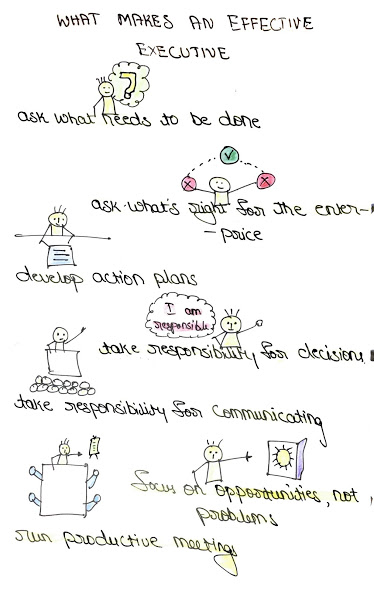 WHAT MAKES AN EFFECTIVE
EXECUTIVE
?
ask what needs to be done
ask what's right for the enter-
- price
develop action plans
I am
responsible
take responsibility for decisions
take responsibility for communicating
focus on opportunities, not
problems
run productive meetings